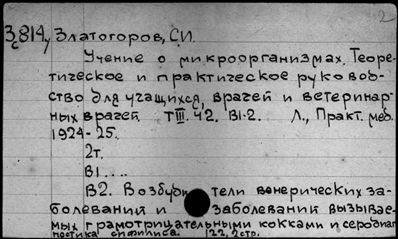 2
З814, Златогоров, С.И.
Учение о микроорганизмах. Теоре-
тическое и практическое руковод-
ство для учащихся, врачей и ветеринар-
ных врачей TIII. Ч2. В1-2. Л., Практ. мед.
1924-25.
2т.
В1....
В2. Возбуди тели венерических за-
болеваний и заболеваний вызывае-
мых грамотрицательными кокками и серодиаг
ностика сифилиса. 122, 2стр.